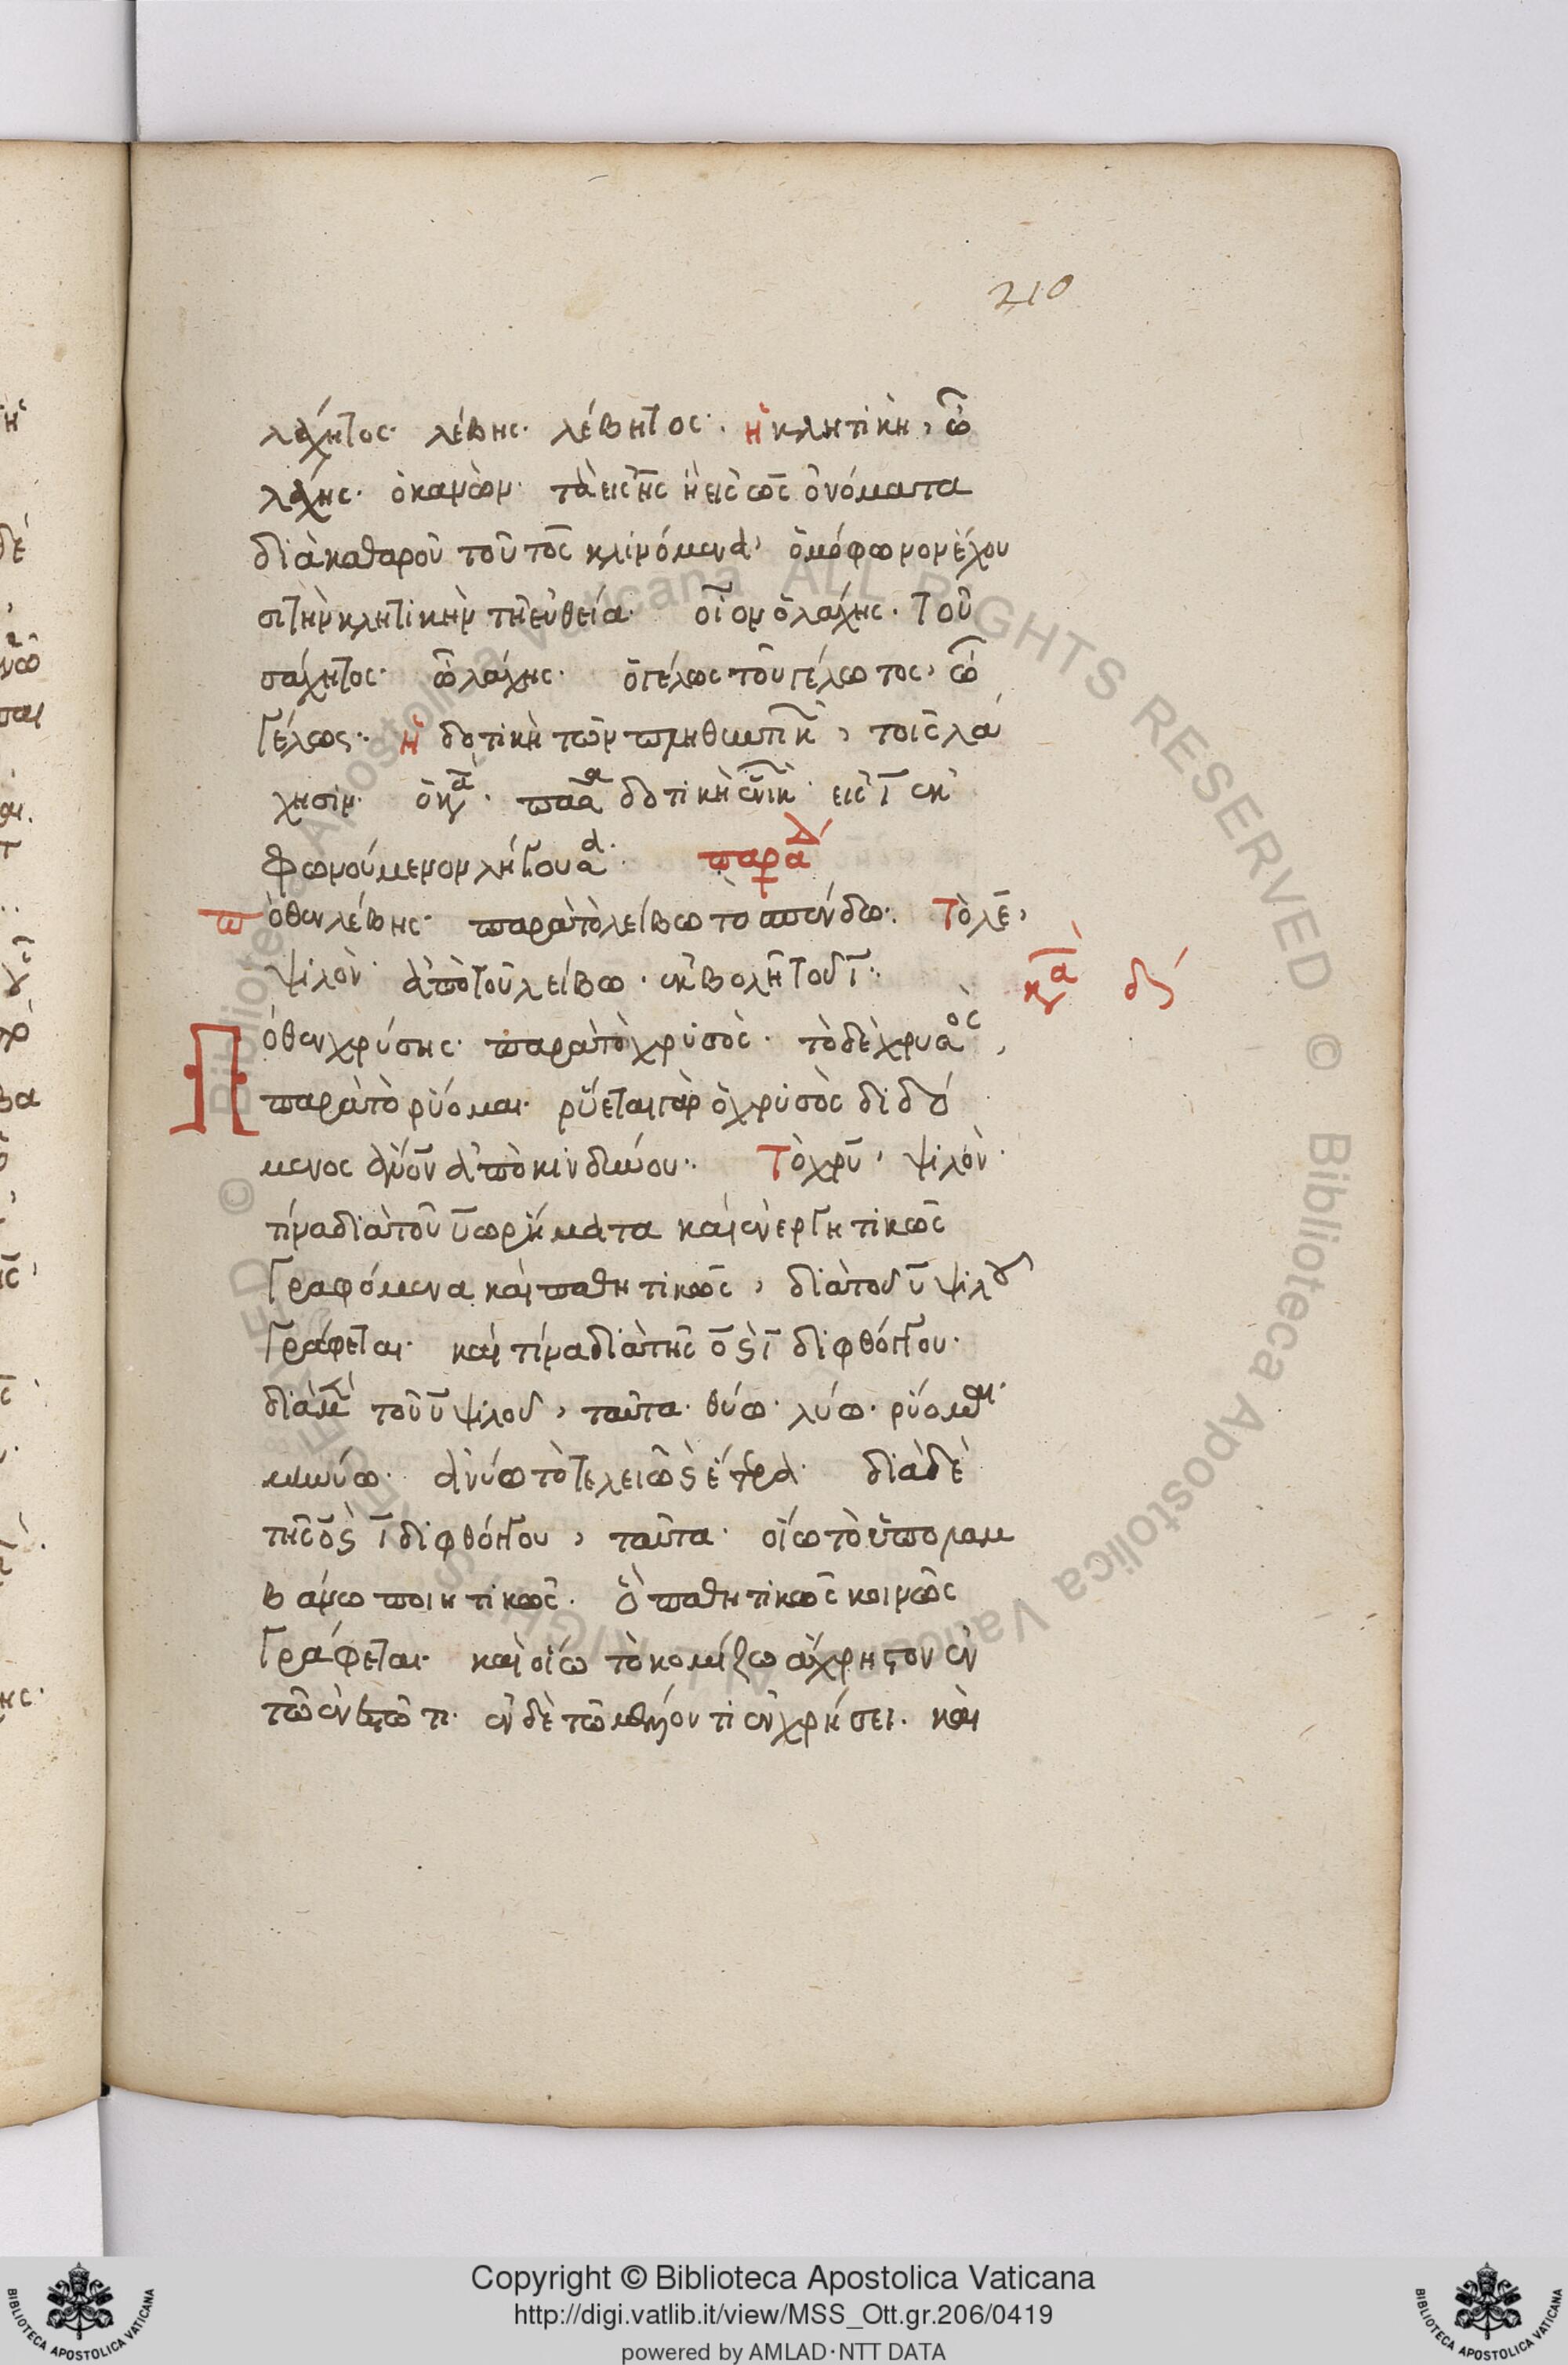 210
λάχητος· λέβης· λέβητος· ἡ κλητικὴ, ὦ
λάχης· ὁ κανὼν· τὰ εἰς ης ἢ εἰς ως ὀνόματα
διὰ καθαροῦ τοῦ τος κλινόμενα, ὁμόφωνον ἔχου
σι τὴν κλητικὴν τῆ εὐθεία· οἷον ὁ λάχης· τοῦ
λάχητος· ὦ λάχης· ὁ γέλως τοῦ γέλωτος, ὦ
γέλως·· ἡ δοτικὴ τῶν πληθυντικ, τοῖς λά
χησιν· ὁ κα· πασα δοτικὴ ἑνικὴ εἰς ι ἐκ
φωνούμενον λήγουσα· παρα
π ὅθεν λέβης· παρὰ τὸ λείβω τὸ σπένδω·. Τὸ λε,
ψιλὸν· ἀπὸ τοῦ λείβω· ἐκβολῆ τοῦ ι·:
κα δς
Π ὅθεν χρύσης· παρὰ τὸ χρυσὸς· τὸ δὲ χρυσος,
παρὰ τὸ ρύομαι· ρύεται γὰρ ὁ χρυσὸς διδό
μενος ἀπὸ κινδύνου·. Τὸ χρυ, ψιλὸν·
τίνα διὰ τοῦ υ ῥήματα καὶ ἐνεργητικῶς
γραφόμενα καὶ παθητικῶς, διὰ τοῦ υ ψιλοῦ
γράφεται· καὶ τίνα διὰ τῆς ο ϛ ι διφθόγγου·
διὰ μὲν τοῦ υ ψιλοῦ, ταῦτα· θύω· λύω· ρύομαι·
μηνύω· ἀνύω τὸ τελειῶ ϛ ἕτερα· διὰ δὲ
τῆς ο ϛ ι διφθόγγου, ταῦτα· οἴω τὸ ὑπολαμ
βάνω ποιητικῶς· ὃ παθητικῶς κοινῶς
γράφεται· καὶ οἴω τὸ κομίζω ἄχρηστον ἐν
τῶ ἐνεστῶτι· ἐν δὲ τῶ μέλλοντι ἐν χρήσει· καὶ
Copyright © Biblioteca Apostolica Vaticana
http://digi.vatlib.it/view/MSS_Ott.gr.206/0419
powered by AMLAD·NTT DATA